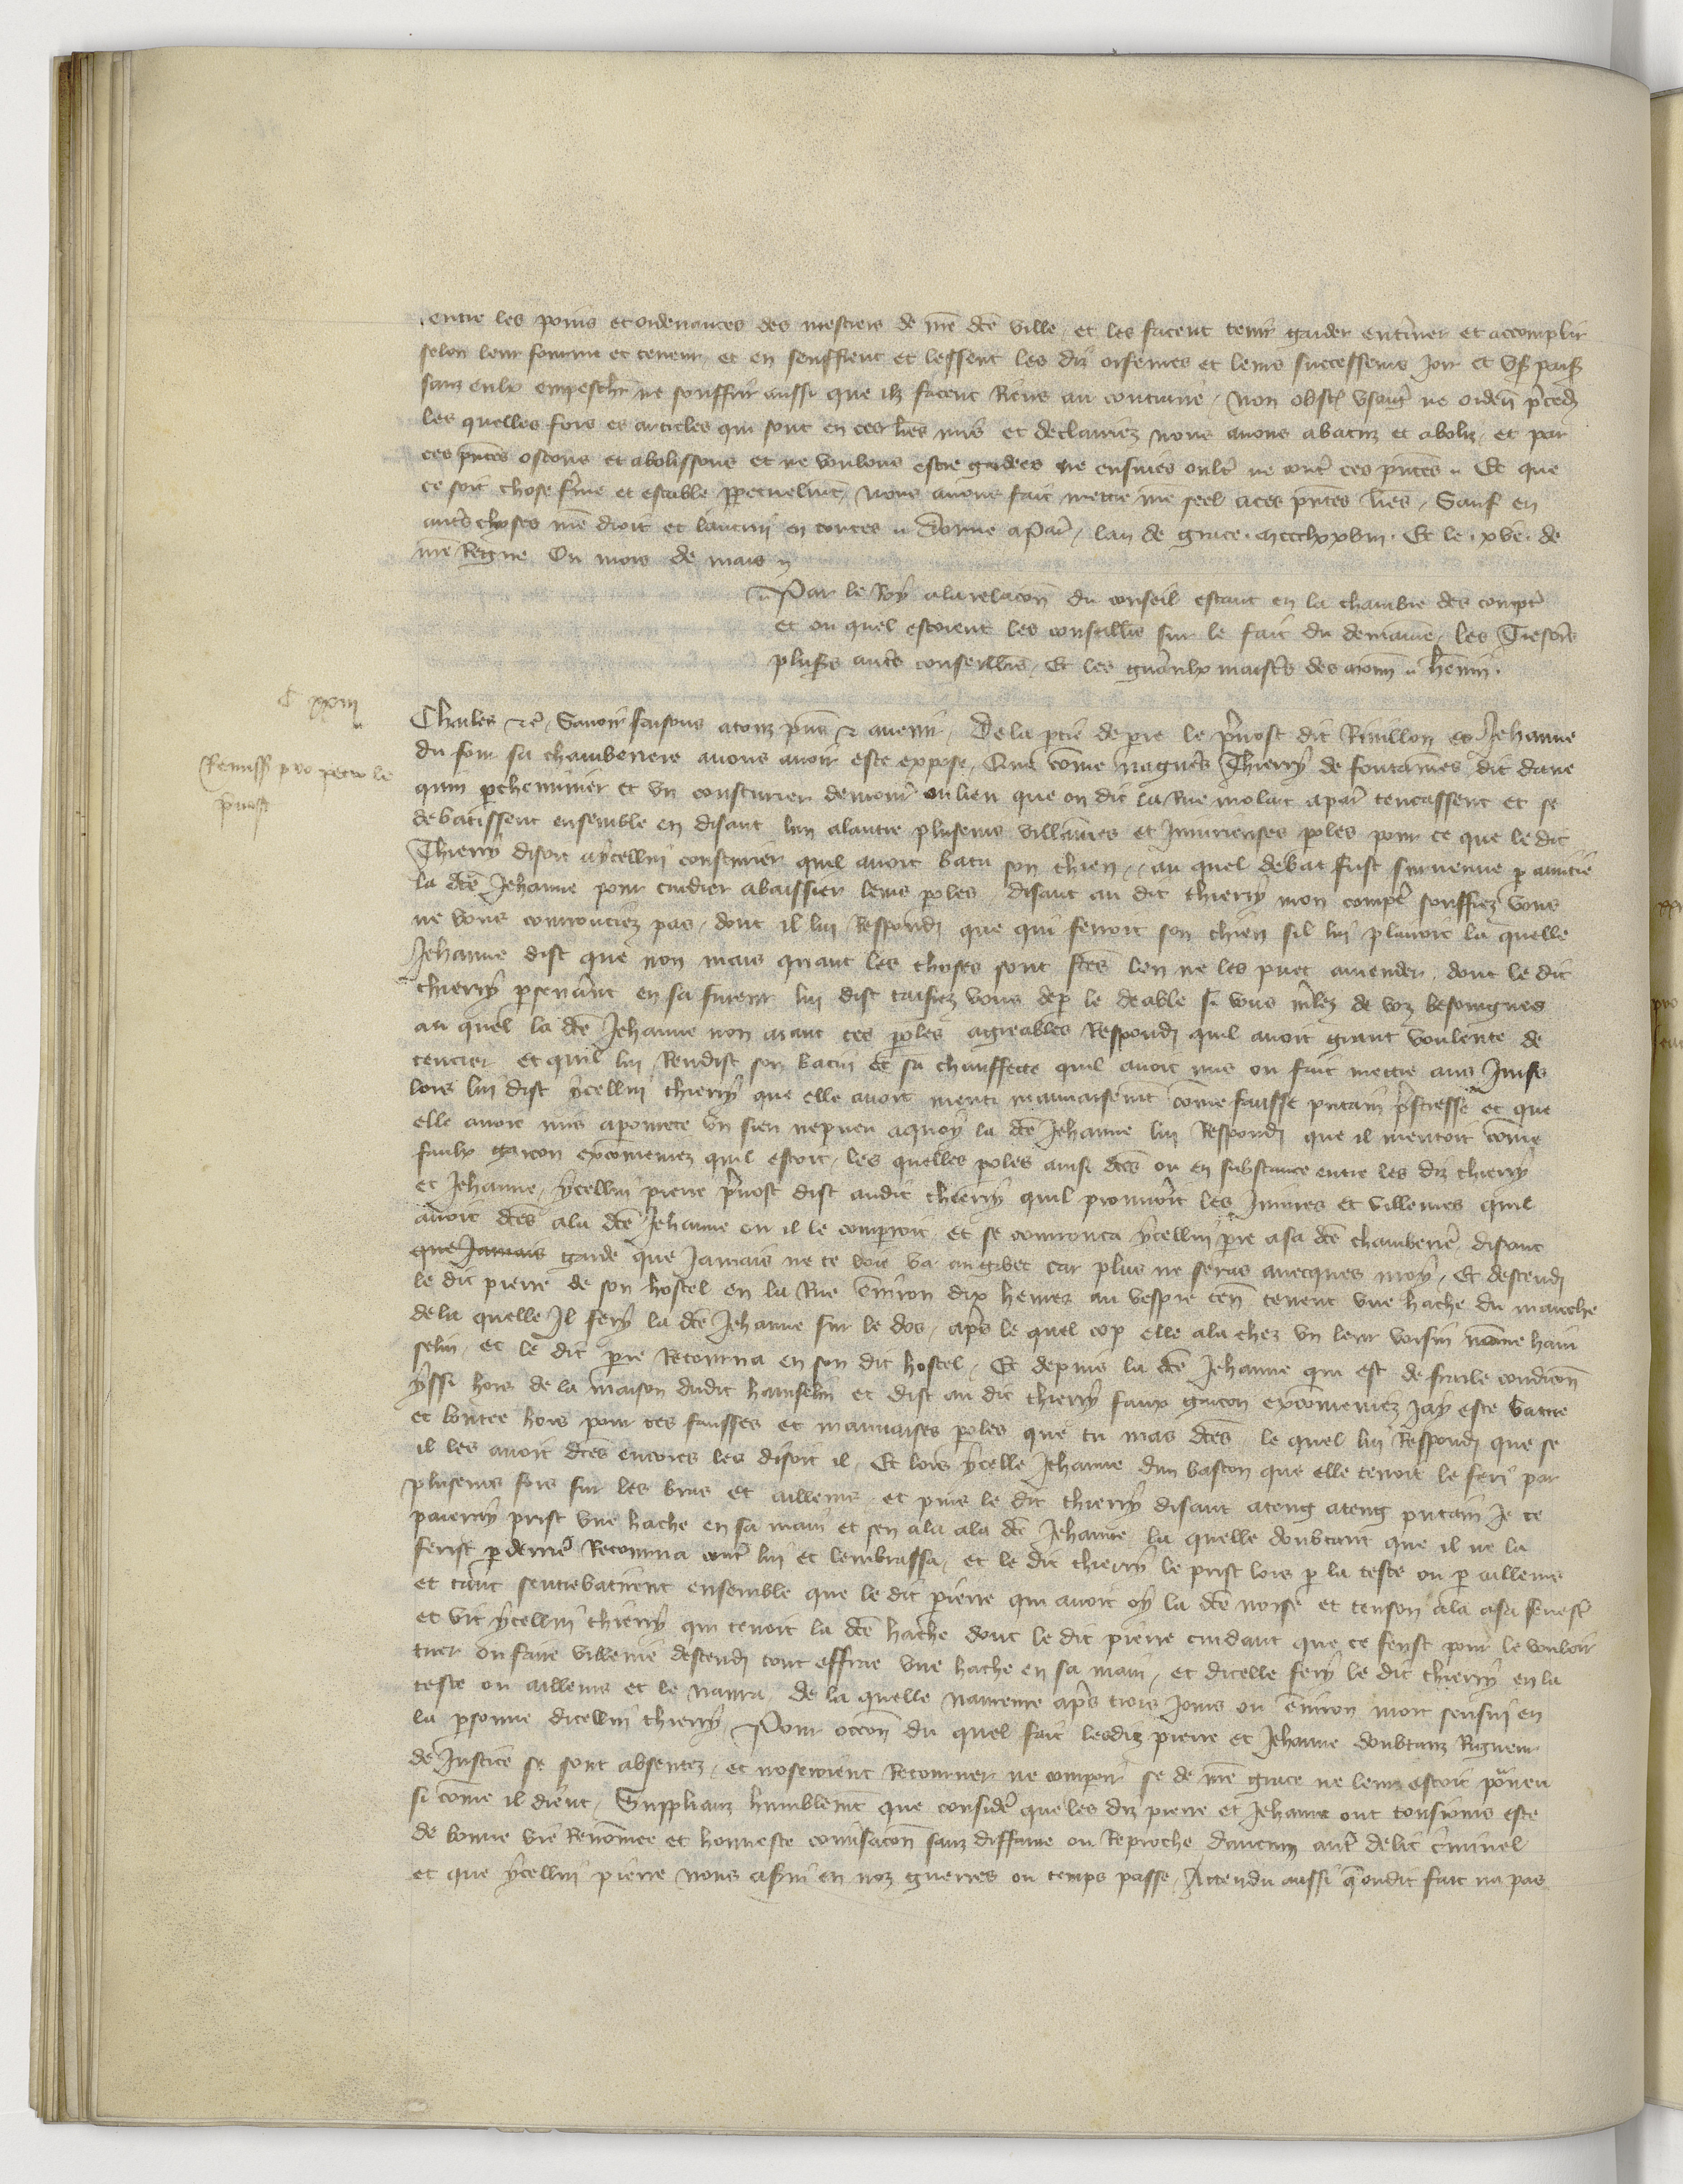 entre les poins et ordenances des mestiers de nre dce ville et les facent tenir garder enteriner et accomplir
selon leur fourme et teneur et en seuffrent et lessent les diz orfevres et leurs successeurs joir et
sanz eulx empescher ne souffrir aussi que ilz facent riens au contraire, non obst usaig ne orden preced
les quelles fors es articles qui sont en ces lres mis et declairiez nous avons abatuz et aboliz et par
ces pntes ostons et abolissons et ne voulons estre gardees ne ensuies oultre ne contre ces pntes Et que
ce soit chose ferme et estable perpetuelmt, nous avons fait mettre nre seel a ces pntes lres, Sauf en
autres choses nre droit et lautrui en toutes donne a Paris, lan de grace mccclxxviii Et le xve de
nre Regne Ou mois de mars
Par le Roy a la relacion du conseil estant en la chambre des comptes
et ou quel estoient les conseillrs sur le fait du demaine, les Tresors
plusrs autres conseillrs, Et les generaulx maistres des monn Henri
C xxiii
Charles etc Savoir faisons a touz pns et avenir, De la partie de Pre le prevost dit Rivillon et Jehanne
Remiss pro petro le
prevost
du four sa chamberiere avons avoir este expose, Que come nagueres Thierry de fontaines dit dane
quin percheminier et un cousturier demour ou lieu que on dit la Rue molart a Paris tencassent et se
debatissent ensemble en disant lun a lautre pluseurs villaines et Injurieuses paroles pour ce que le dit
Thierry disoit a ycellui cousturier quil avoit batu son chien, au quel debat fust survenue par amitie
la dce Jehanne pour cuidier abaissier leurs paroles, disant au dit thierry mon compere souffrez vous
ne vous courrouciez pas, dont il lui Respondi que qui ferroit son chien sil lui plairoit la quelle
Jehanne dist que non mais quant les choses sont fces len ne les puet amender, dont le dit
thierry perseverant en sa fureur lui dist taisiez vous de par le deable si vous meslez de voz besoingnes
au quel la dce Jehanne non aiant ces paroles agreables Respondi quil avoit grant voulente de
tencier et quil lui Rendist son bacin et sa chauffecte quil avoit mis ou fait mettre aus Juifs
lors lui dist ycellui thierry que elle avoit menti mauvaisemt come fausse putain prestresse et que
elle avoit mis a povrete un sien nepveu a quoy la dce Jehanne lui Respondi que il mentoit come
faulx garcon excomeniez quil estoit, les quelles paroles ainsi dces ou en substance entre les diz thierry
et Jehanne, ycellui pierre prevost dist audit thierry quil prouveroit les Injures et villenies quil
avoit dces a la dce Jehanne ou il le comparroit et se courrouca ycellui pre a sa dce chamberiere, disant
que Jamais garde que Jamais ne te voie va au gibet car plus ne seras avecques moy, Et descendi
le dit pierre de son hostel en la Rue environ dix heures au vespre ten tenent une hache du manche
de la quelle Il fery la dce Jehanne sur le dos, apres le quel cop elle ala chez un leur voisin nome hain
selin, et le dit pre Retourna en son dit hostel, Et depuis la dce Jehanne qui est de fraile condicion
yssi hors de la maison dudit hainselin et dist au dit thierry faux garcon excomeniez jay este batue
et boutee hors pour tes fausses et mauvaises paroles que tu mas dces, le quel lui Respondi que se
il les avoit dces encores les disoit il, Et lors ycelle Jehanne dun baston que elle tenoit le feri par
pluseurs fois sur les bras et ailleurs, et puis le dit thierry disant ateng ateng putain Je te
paierey prist une hache en sa main et sen ala a la dce Jehanne la quelle doubtant que il ne la
ferist par derriere Retourna contre lui et lembrassa, et le dit thierry le prist lors par la teste ou par ailleurs
et tant sentrebatirent ensemble que le dit pierre qui avoit oy la dce noise et tenson ala a sa fenestre
et vit ycellui thierry qui tenoit la dce hache dont le dit pierre cuidant que ce feust pour le vouloir
tuer ou faire villenie descendi tout effraie une hache en sa main, et dicelle fery le dit thierry en la
teste ou ailleurs et le navra, de la quelle navreure apres trois jours ou environ mort sensui en
la personne dicellui thierry, Pour occon du quel fait lesdiz pierre et Jehanne doubtanz Rigueur
de Justice se sont absentez, et noseroient Retourner ne comparoir se de nre grace ne leur estoit porveu
si come il dient, Supplianz humblemt que consider que les diz pierre et Jehanne ont tousjours este
de bonne vie Renomee et honneste conversacon sanz diffame ou Reproche daucun autre delit criminel
et que ycellui pierre nous a servi en noz guerres ou temps passe, Attendu aussi que ou dit fait na pas